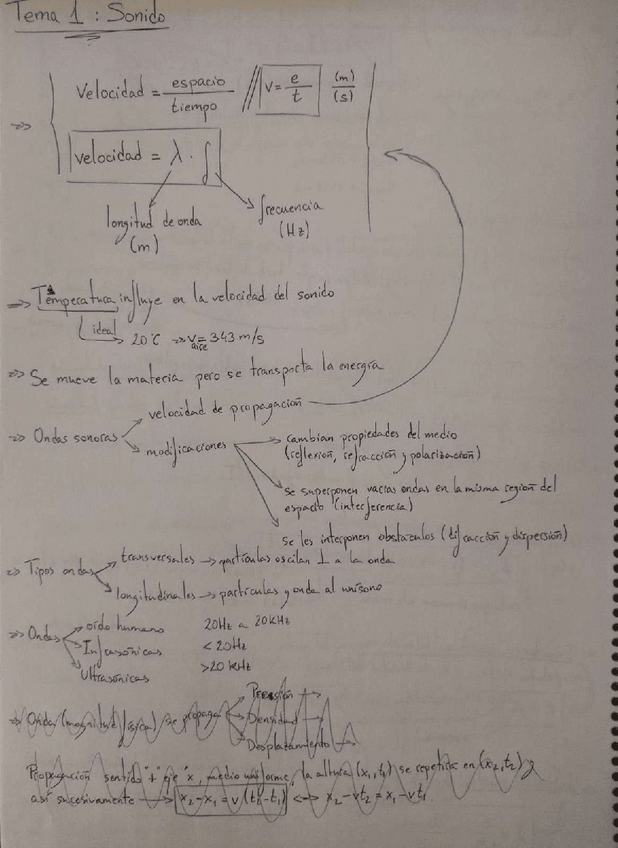 Tema 1 : Sonido
Velocidad = espacio / tiempo // v = e / t (m) / (s)
⇒ velocidad = λ · f
longitud de onda (m)
frecuencia (Hz)
⇒ Temperatura influye en la velocidad del sonido
ideal → 20°C ⇒ v aire = 343 m/s
⇒ Se mueve la materia pero se transporta la energía
⇒ Ondas sonoras
velocidad de propagación
modificaciones
cambian propiedades del medio
(reflexión, refracción y polarización)
se superponen varias ondas en la misma región del
espacio (interferencia)
se les interponen obstáculos (difracción y dispersión)
⇒ Tipos ondas
transversales → partículas oscilan ⊥ a la onda
longitudinales → partículas y onda al unísono
⇒ Ondas
oído humano 20Hz a 20KHz
Infrasónicas < 20Hz
Ultrasónicas >20 KHz
⇒ Ondas (magnitud física) se propaga
Presión
Densidad
Desplazamiento
Propagación sentido "+" eje "x", medio uniforme, la altura (x₁, t₁) se repetirá en (x₂, t₂) y
así sucesivamente → x₂-x₁ = v (t₂-t₁) <-> x₂-vt₂ = x₁-vt₁